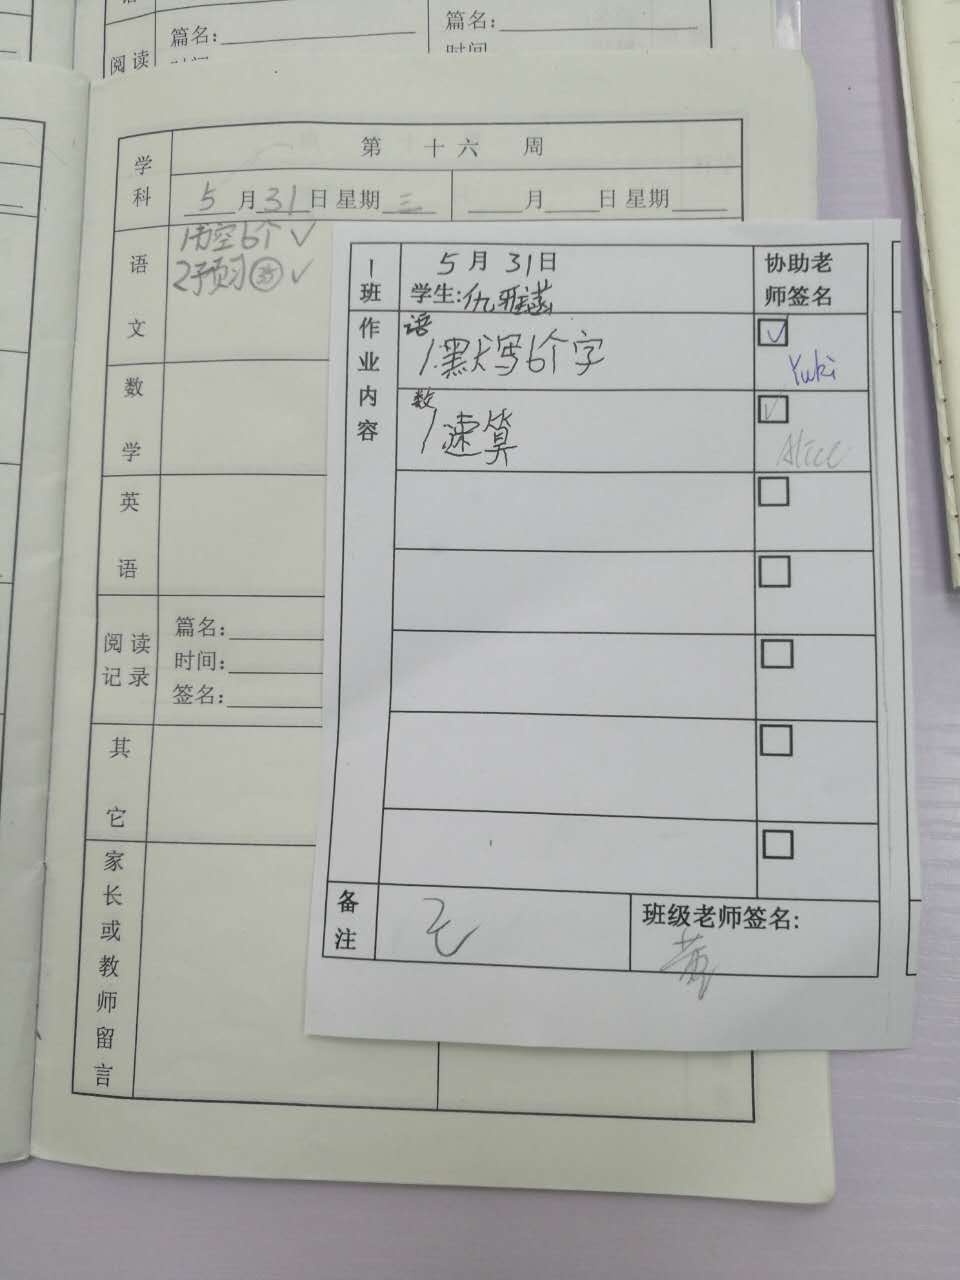 阅读
篇名:
篇名:
时间
学科
第 十六 周
5月31日 星期三
月 日 星期
语文
1.听空6个 ✓
2.预习㉟ ✓
数学
英语
阅读记录
篇名:
时间:
签名:
其它
家长或教师留言
1班
5月31日
学生:仇雅
协助老师签名
作业内容
语
1.默写6个字
✓
Yuki
数
1.速算
✓
Alice
备注
无
班级老师签名:
黄